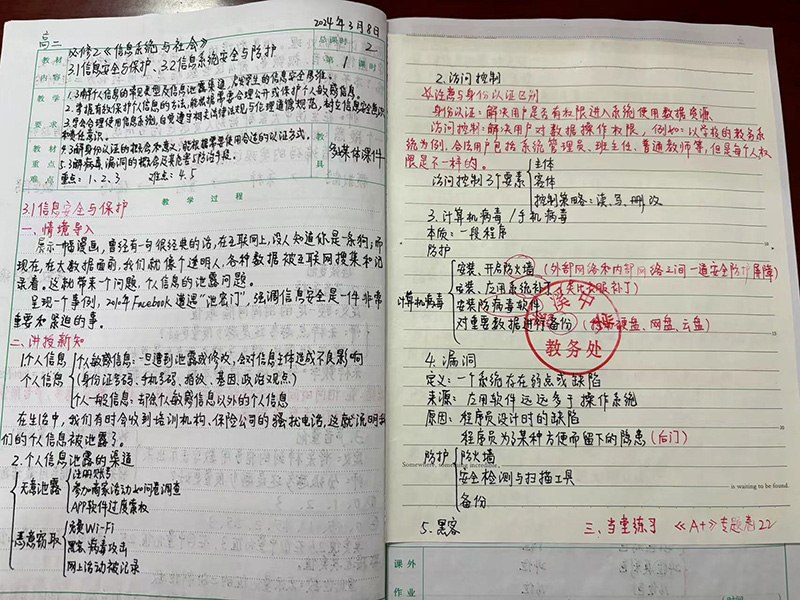 2024年3月8日
高二
必修2《信息系统与社会》
总课时
2
教材
3.1信息安全与保护、3.2信息系统安全与防护
第1课时
内容:
教学
要求
重点
难点
教具
多媒体课件
重点:1、2、3 难点:4、5
教学过程
3.1信息安全与保护
一、情境导入
展示一幅漫画,曾经有一句很经典的话,在互联网上,没人知道你是一条狗;而
现在,在大数据面前,我们就像个透明人,各种数据被互联网搜集和记
录着。这就带来一个问题,个人信息的泄露问题。
呈现一个事例,2010年Facebook遭遇“泄密门”,强调信息安全是一件非常
重要和紧迫的事。
二、讲授新知
1.个人信息
个人敏感信息:一旦遭到泄露或修改,会对信息主体造成不良影响
个人信息
(身份证号码、手机号码、指纹、基因、政治观点)
个人一般信息:却除个人敏感信息以外的个人信息
在生活中,我们有时会收到培训机构、保险公司的骚扰电话,这就说明我
们的个人信息被泄露了。
2.个人信息泄露的渠道
无意泄露
注册账号
参加商家活动如问卷调查
APP软件过度索权
恶意窃取
免费Wi-Fi
黑客病毒攻击
网上活动被记录
2.访问控制
注意与身份认证区别
身份认证:解决用户是否有权限进入系统使用数据资源
访问控制:解决用户对数据操作权限,例如:以学校的教务系
统为例,合法用户包括系统管理员、班主任、普通教师等,但是每个人权
限是不一样的。
访问控制3个要素
主体
客体
控制策略:读、写、删、改
3.计算机病毒/手机病毒
本质:一段程序
防护
计算机病毒
安装、开启防火墙(外部网络和内部网络之间一道安全防护屏障)
安装、应用系统补丁
安装防病毒软件
对重要数据进行备份
硬盘、网盘、云盘)
教务处
4.漏洞
定义:一个系统存在弱点或缺陷
来源:应用软件远远多于操作系统
原因:程序员设计时的缺陷
程序员为了某种方便而留下的隐患(后门)
防护
防火墙
安全检测与扫描工具
备份
Somewhere, something incredible
is waiting to be found.
5.黑客
三、当堂练习 《A+》专题卷22
课外
作业